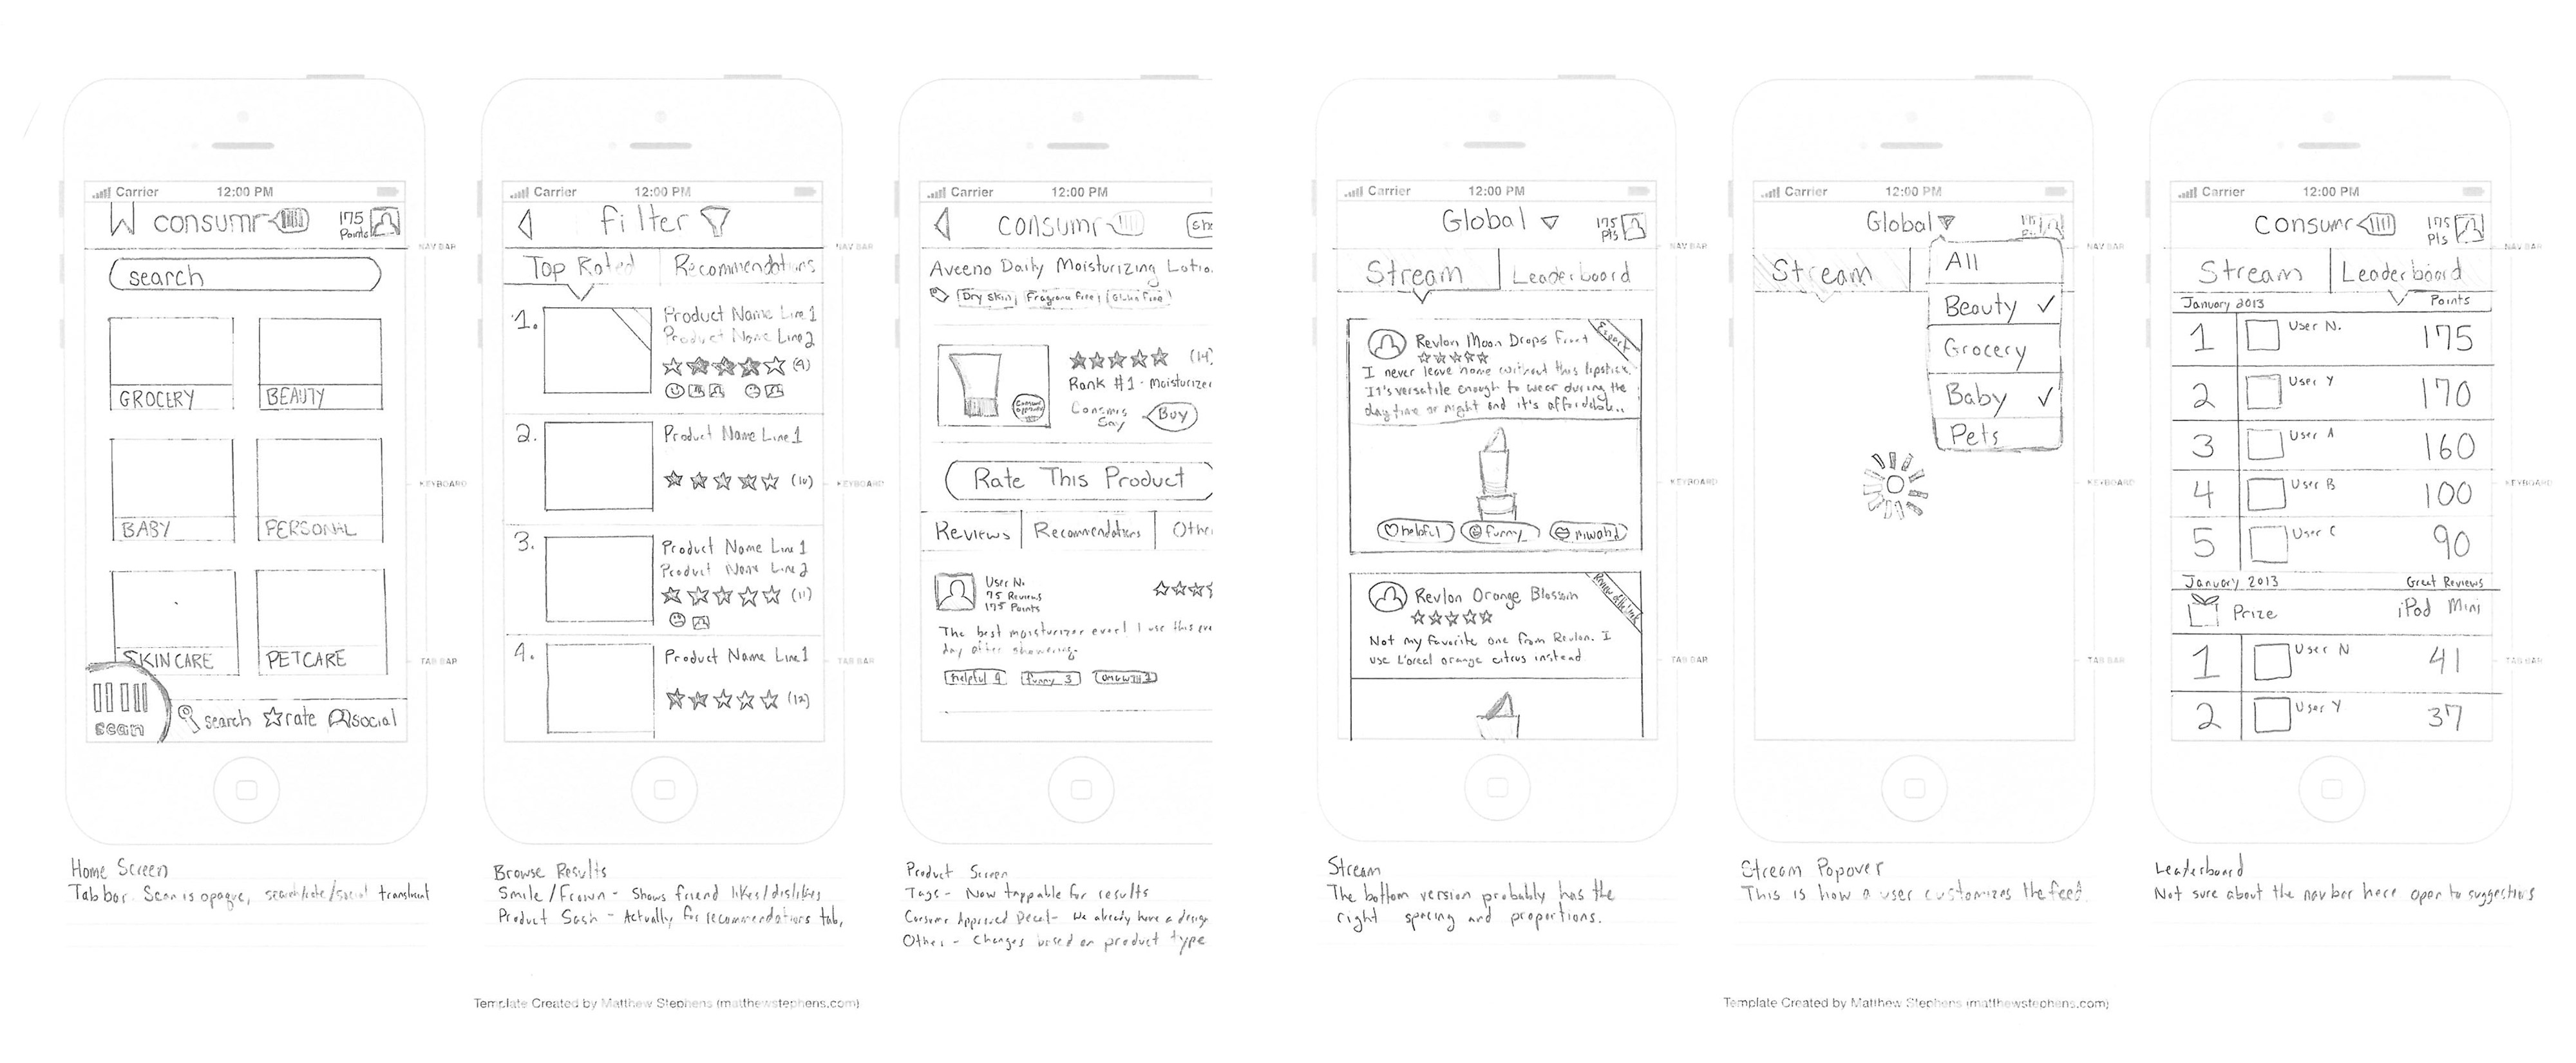 Carrier 12:00 PM
consumr 175 Points
NAV BAR
search
GROCERY BEAUTY
KEYBOARD
BABY PERSONAL
SKINCARE PETCARE
TAB BAR
scan search rate social
Home Screen
Tab bar. Scan is opaque, search/rate/social translucent
Carrier 12:00 PM
filter
NAV BAR
Top Rated Recommendations
1. Product Name Line 1
Product Name Line 2
(9)
2. Product Name Line 1
(10)
KEYBOARD
3. Product Name Line 1
Product Name Line 2
(11)
4. Product Name Line 1
TAB BAR
(12)
Browse Results
Smile/Frown - Shows friend likes/dislikes
Product Sash - Actually for recommendations tab,
Carrier 12:00 PM
consumr
Aveeno Daily Moisturizing Lotio
Dry skin Fragrance Free
(14)
Rank #1 - Moisturizer
Consmrs Say Buy
Rate This Product
Reviews Recommendations Othe
User N.
75 Reviews
175 Points
The best moisturizer ever! I use this eve
day after showering.
helpful 9 funny 3
Product Screen
Tags - Now tappable for results
Consumr Approved Decal - We already have a design
Other - Changes based on product type
Template Created by Matthew Stephens (matthewstephens.com)
Carrier 12:00 PM
Global 175 Pts
NAV BAR
Stream Leaderboard
Revlon Moon Drops Frost
Expert
I never leave home without this lipstick.
It's versatile enough to wear during the
day time or night and it's affordable..
KEYBOARD
helpful funny
Revlon Orange Blossom
Not my favorite one from Revlon. I
use L'oreal orange citrus instead
TAB BAR
Stream
The bottom version probably has the
right spacing and proportions.
Carrier 12:00 PM
Global
NAV BAR
Stream
All
Beauty ✓
Grocery
Baby ✓
Pets
KEYBOARD
TAB BAR
Stream Popover
This is how a user customizes the feed.
Carrier 12:00 PM
Consumr 175 Pts
NAV BAR
Stream Leaderboard
January 2013 Points
1 User N. 175
2 User Y 170
3 User A 160
4 User B 100
KEYBOARD
5 User C 90
January 2013 Great Reviews
Prize iPod Mini
1 User N 41
TAB BAR
2 User Y 37
Leaderboard
Not sure about the nav bar here open to suggestions
Template Created by Matthew Stephens (matthewstephens.com)